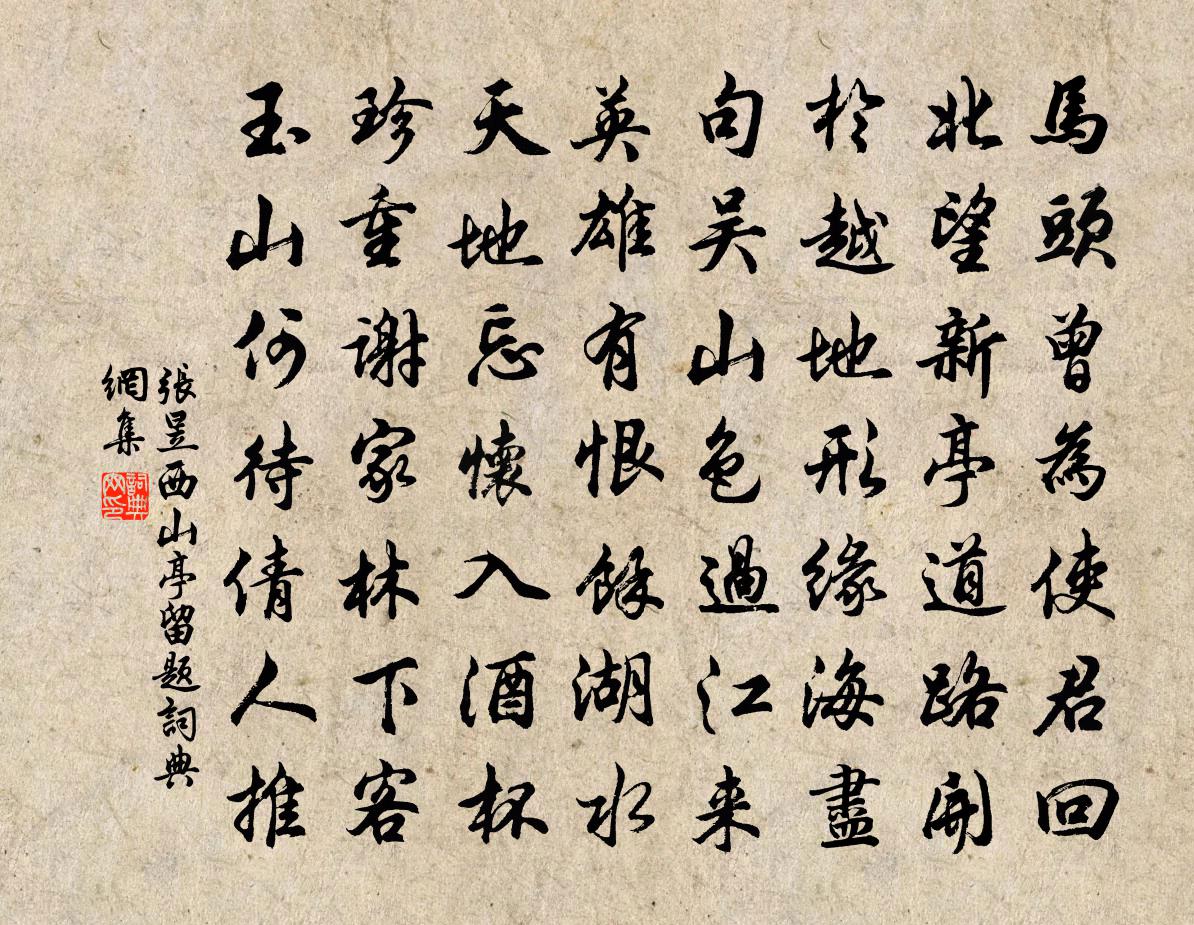 馬頭曾為使君回
北望新亭道路開
於越地形緣海盡
句吳山色過江来
英雄有恨餘湖水
天地忘懷入酒杯
珍重謝家林下客
玉山何待倩人推
張昱西山亭留題詞典
網集
詞典
网印